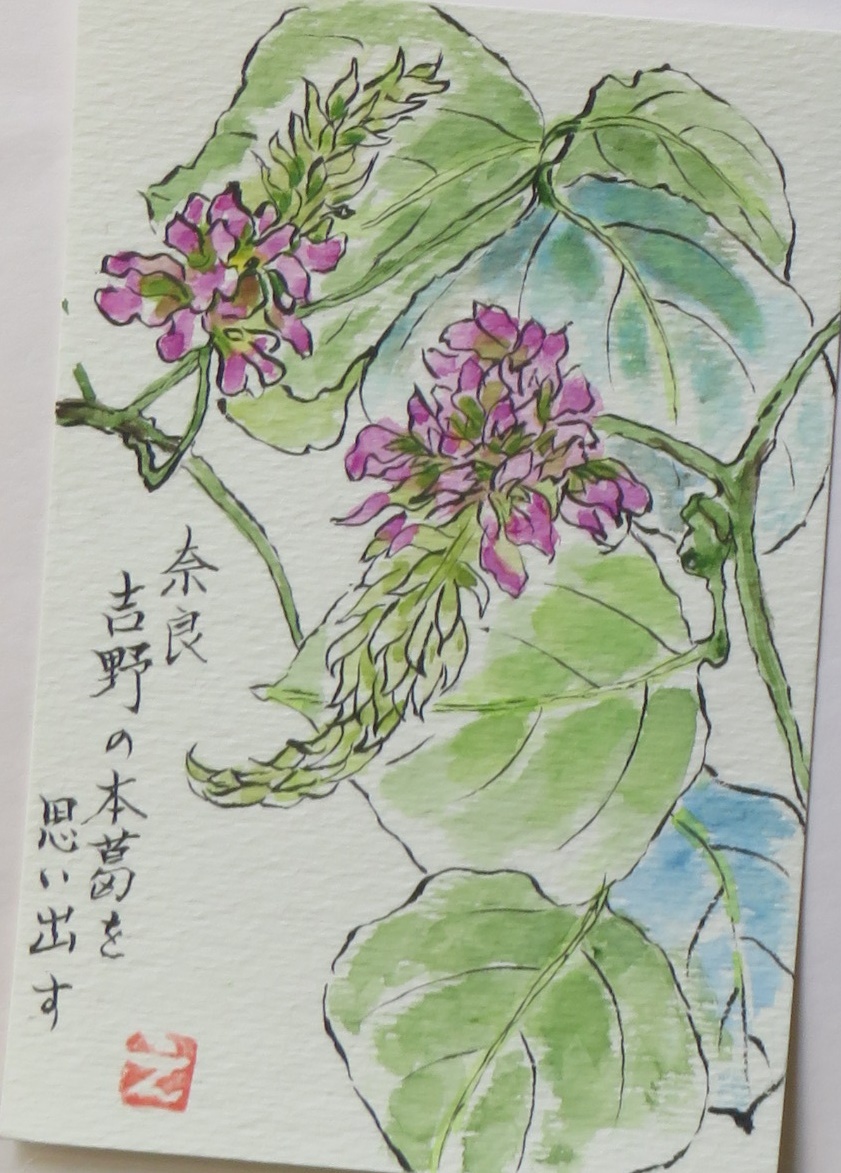 奈良
吉野の本葛を
思い出す